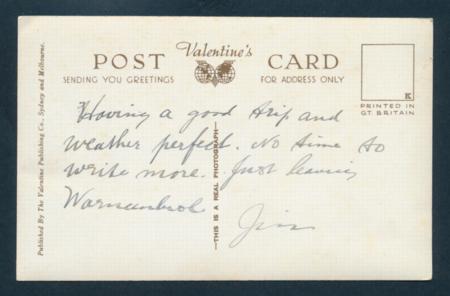 POST Valentine's CARD
SENDING YOU GREETINGS FOR ADDRESS ONLY
K
PRINTED IN
GT. BRITAIN
Having a good trip and
weather perfect. No time to
write more. Just leaving
Warnambool
Jim
THIS IS A REAL PHOTOGRAPH
Published By The Valentine Publishing Co., Sydney and Melbourne.